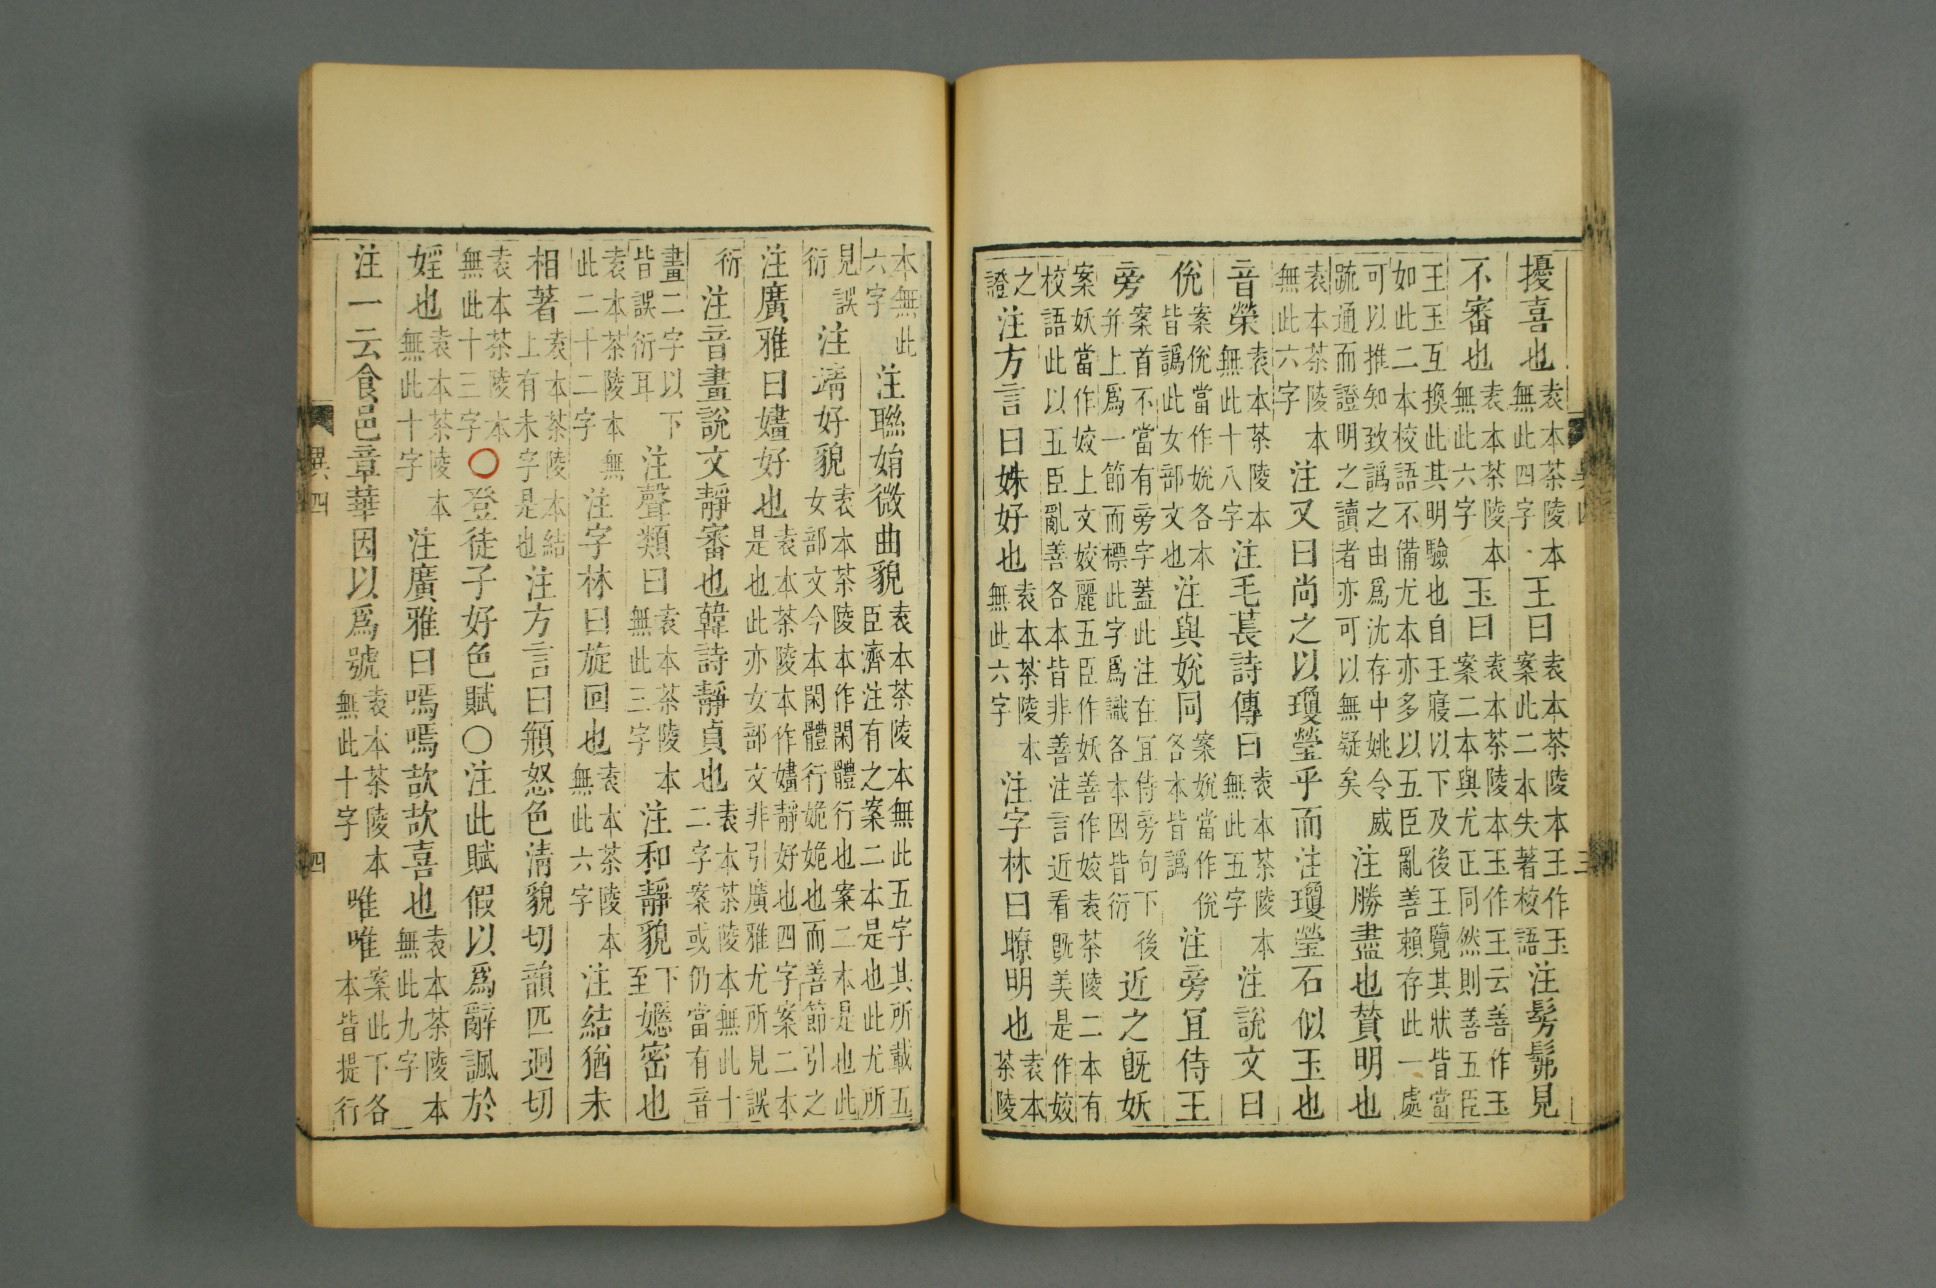 擾喜也袁本茶陵本無此四字王曰袁本茶陵本王作玉案此二本失著校語注髣髴見
不審也袁本茶陵本無此六字玉曰袁本茶陵本玉作王云善作玉案二本與尤正同然則善五臣
王玉互換此其明驗也自王寢以下及後王覽其狀皆當如此二本校語不備尤本亦多以五臣亂善賴存此一處
可以推知致譌之由爲沈存中姚令威疏通而證明之讀者亦可以無疑矣注勝盡也贊明也
袁本茶陵本無此六字注又曰尚之以瓊瑩乎而注瓊瑩石似玉也
音榮袁本茶陵本無此十八字注毛萇詩傳曰袁本茶陵本無此五字注說文曰
侻案侻當作娧各本皆譌此女部文也注與娧同案娧當作侻各本皆譌注旁宜侍王
旁案首不當有旁字蓋此注在宜侍旁句下後并上爲一節而標此字爲識各本因皆衍近之旣妖
案妖當作姣上文姣麗五臣作妖善作姣袁茶陵二本有校語此以五臣亂善各本皆非善注言近看旣美是作姣
之證注方言曰姝好也袁本茶陵本無此六字注字林曰瞭明也袁本茶陵
本無此六字注聯娟微曲貌袁本茶陵本無此五字其所載五臣濟注有之案二本是也此尤所
見誤衍注靖好貌袁本茶陵本作閑體行也案二本是也此女部文今本閑體行姽姽也而善節引之
注廣雅曰嫿好也袁本茶陵本作嫿靜好也四字案二本是也此亦女部文非引廣雅尤所見誤
衍注音畫說文靜審也韓詩靜貞也袁本茶陵本無此十二字案或仍當有音
畫二字以下皆誤衍耳注聲類曰袁本茶陵本無此三字注和靜貌下至嫕密也
袁本茶陵本無此二十二字注字林曰旋回也袁本茶陵本無此六字注結猶未
相著袁本茶陵本結上有未字是也注方言曰頩怒色清貌切韻匹迥切
袁本茶陵本無此十三字○登徒子好色賦○注此賦假以爲辭諷於
婬也袁本茶陵本無此十字注廣雅曰嗎嗎欯欯喜也袁本茶陵本無此九字
注一云食邑章華因以爲號袁本茶陵本無此十字唯唯案此下各本皆提行
異四 四